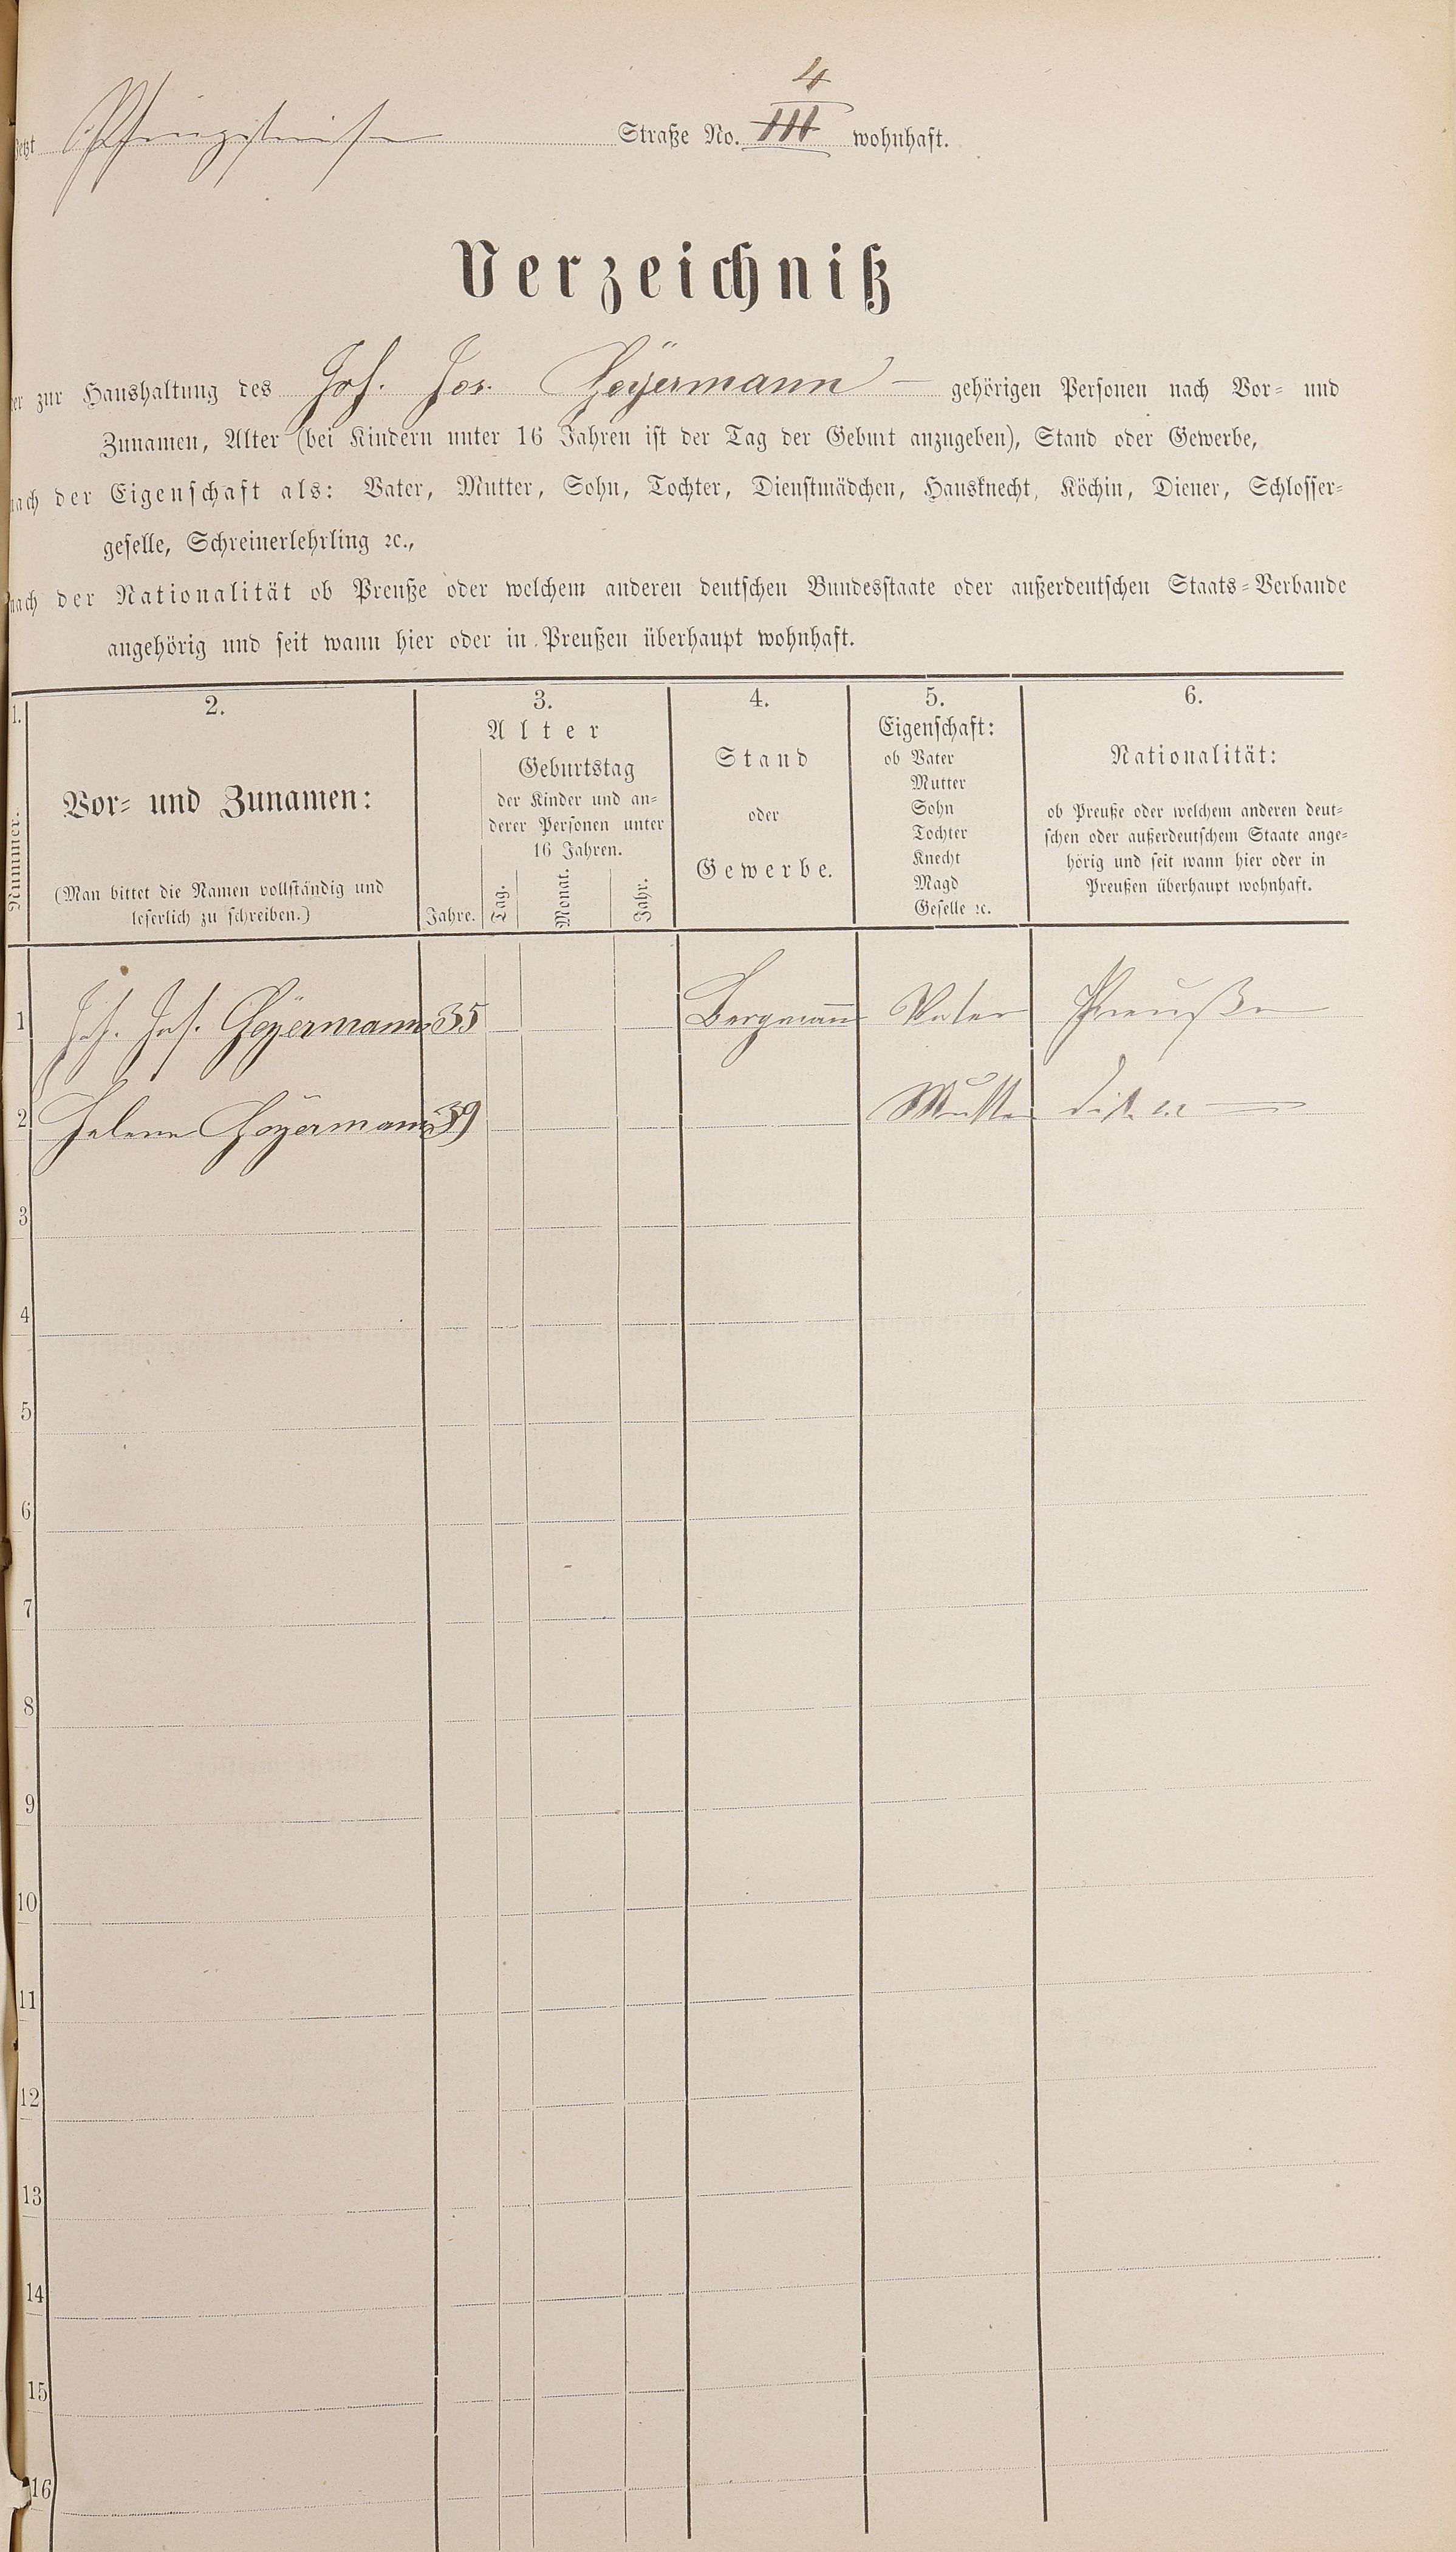 4
jetzt Straße No. III wohnhaft.
Verzeichniß
der zur Haushaltung des Joh. Jos. Heÿermann – gehörigen Personen nach Vor- und
Zunamen, Alter (bei Kindern unter 16 Jahren ist der Tag der Geburt anzugeben), Stand oder Gewerbe,
nach der Eigenschaft als: Vater, Mutter, Sohn, Tochter, Dienstmädchen, Hausknecht, Köchin, Diener, Schlosser-
geselle, Schreinerlehrling ꝛc.,
nach der Nationalität ob Preuße oder welchem anderen deutschen Bundesstaate oder außerdeutschen Staats-Verbande
angehörig und seit wann hier oder in Preußen überhaupt wohnhaft.
1. 2. 3. 4. 5. 6.
Nummer.
Vor- und Zunamen:
(Man bittet die Namen vollständig und
leserlich zu schreiben.)
Alter
Geburtstag
der Kinder und an-
derer Personen unter
16 Jahren.
Jahre. Tag. Monat. Jahr.
Stand
oder
Gewerbe.
Eigenschaft:
ob Vater
Mutter
Sohn
Tochter
Knecht
Magd
Geselle ꝛc.
Nationalität:
ob Preuße oder welchem anderen deut-
schen oder außerdeutschem Staate ange-
hörig und seit wann hier oder in
Preußen überhaupt wohnhaft.
1 Joh. Jos. Heÿermann 35 Bergmann Vater Preuße
2 Helene Heÿermann 39 Mutter
3
4
5
6
7
8
9
10
11
12
13
14
15
16